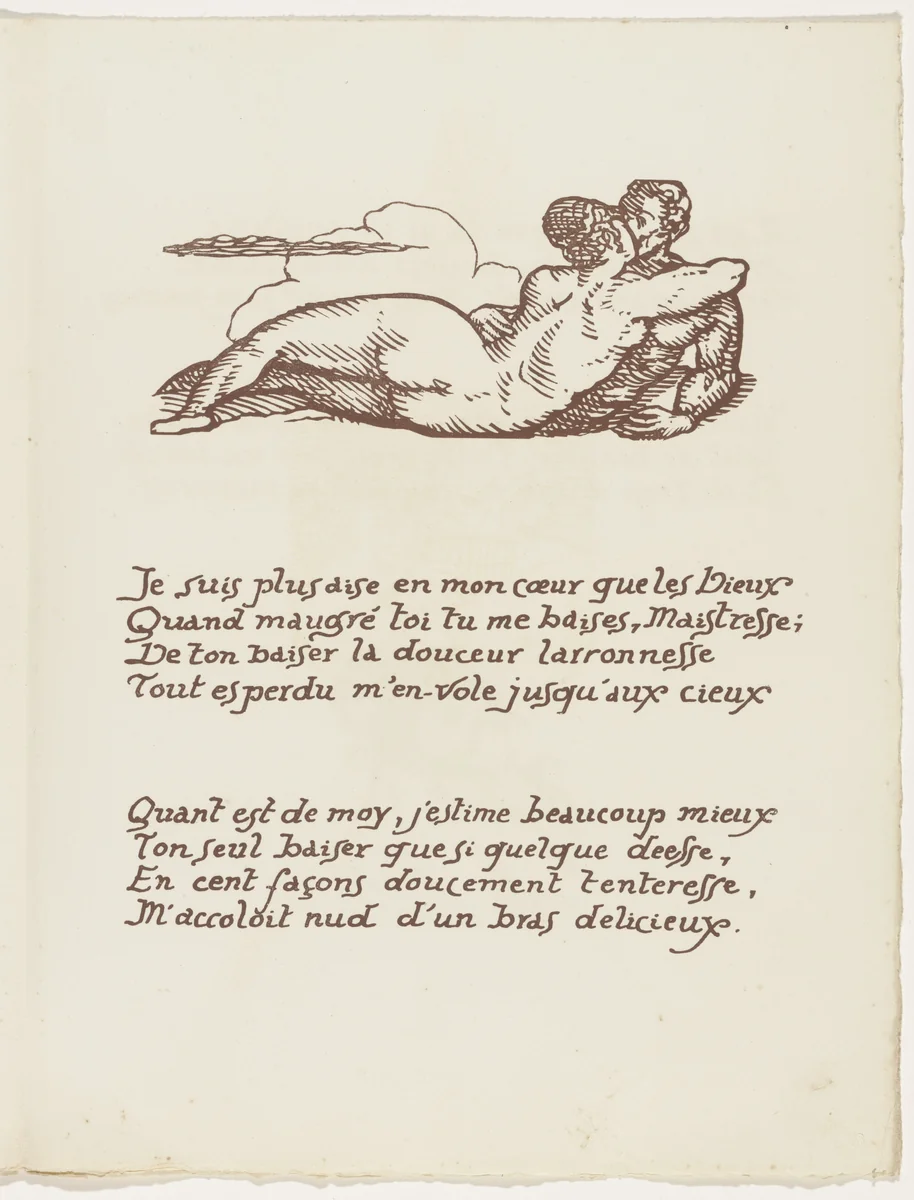 Je suis plus aise en mon cœur que les Dieux
Quand maugré toi tu me baises, Maistresse;
De ton baiser la douceur larronnesse
Tout esperdu m'en-vole jusqu'aux cieux
Quant est de moy, j'estime beaucoup mieux
Ton seul baiser que si quelque deesse,
En cent façons doucement tenteresse,
M'accoloit nud d'un bras delicieux.